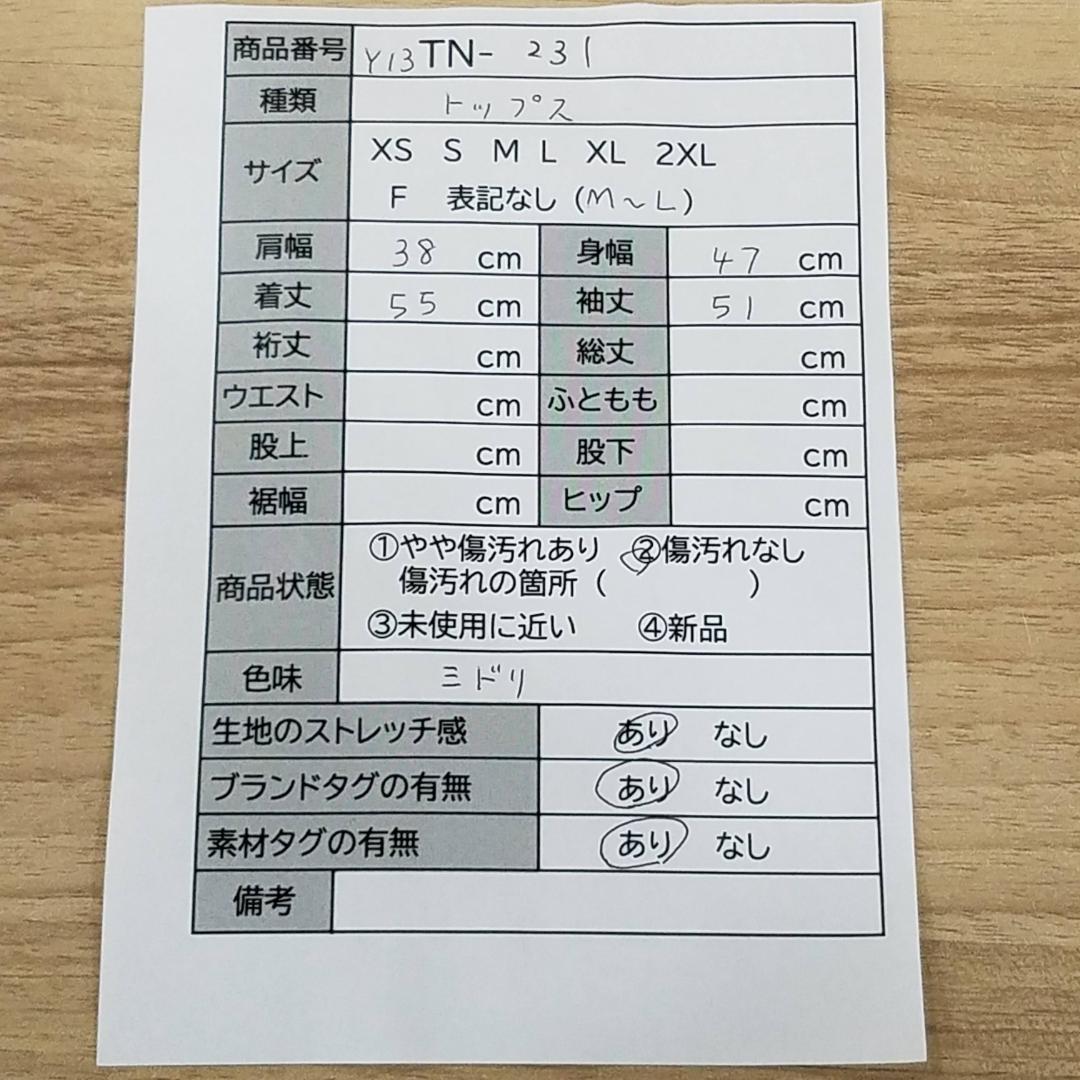 商品番号 Y13TN- 231
種類 トップス
サイズ XS S M L XL 2XL
F 表記なし (M～L)
肩幅 38 cm 身幅 47 cm
着丈 55 cm 袖丈 51 cm
裄丈 cm 総丈 cm
ウエスト cm ふともも cm
股上 cm 股下 cm
裾幅 cm ヒップ cm
商品状態 ①やや傷汚れあり ②傷汚れなし
傷汚れの箇所 ( )
③未使用に近い ④新品
色味 ミドリ
生地のストレッチ感 あり なし
ブランドタグの有無 あり なし
素材タグの有無 あり なし
備考